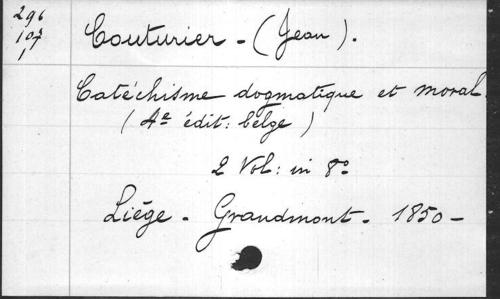 296
107
1
Couturier - (Jean).
Catéchisme dogmatique et moral.
(4e édit: belge)
2 Vol: in 8°
Liége - Grandmont - 1850 -